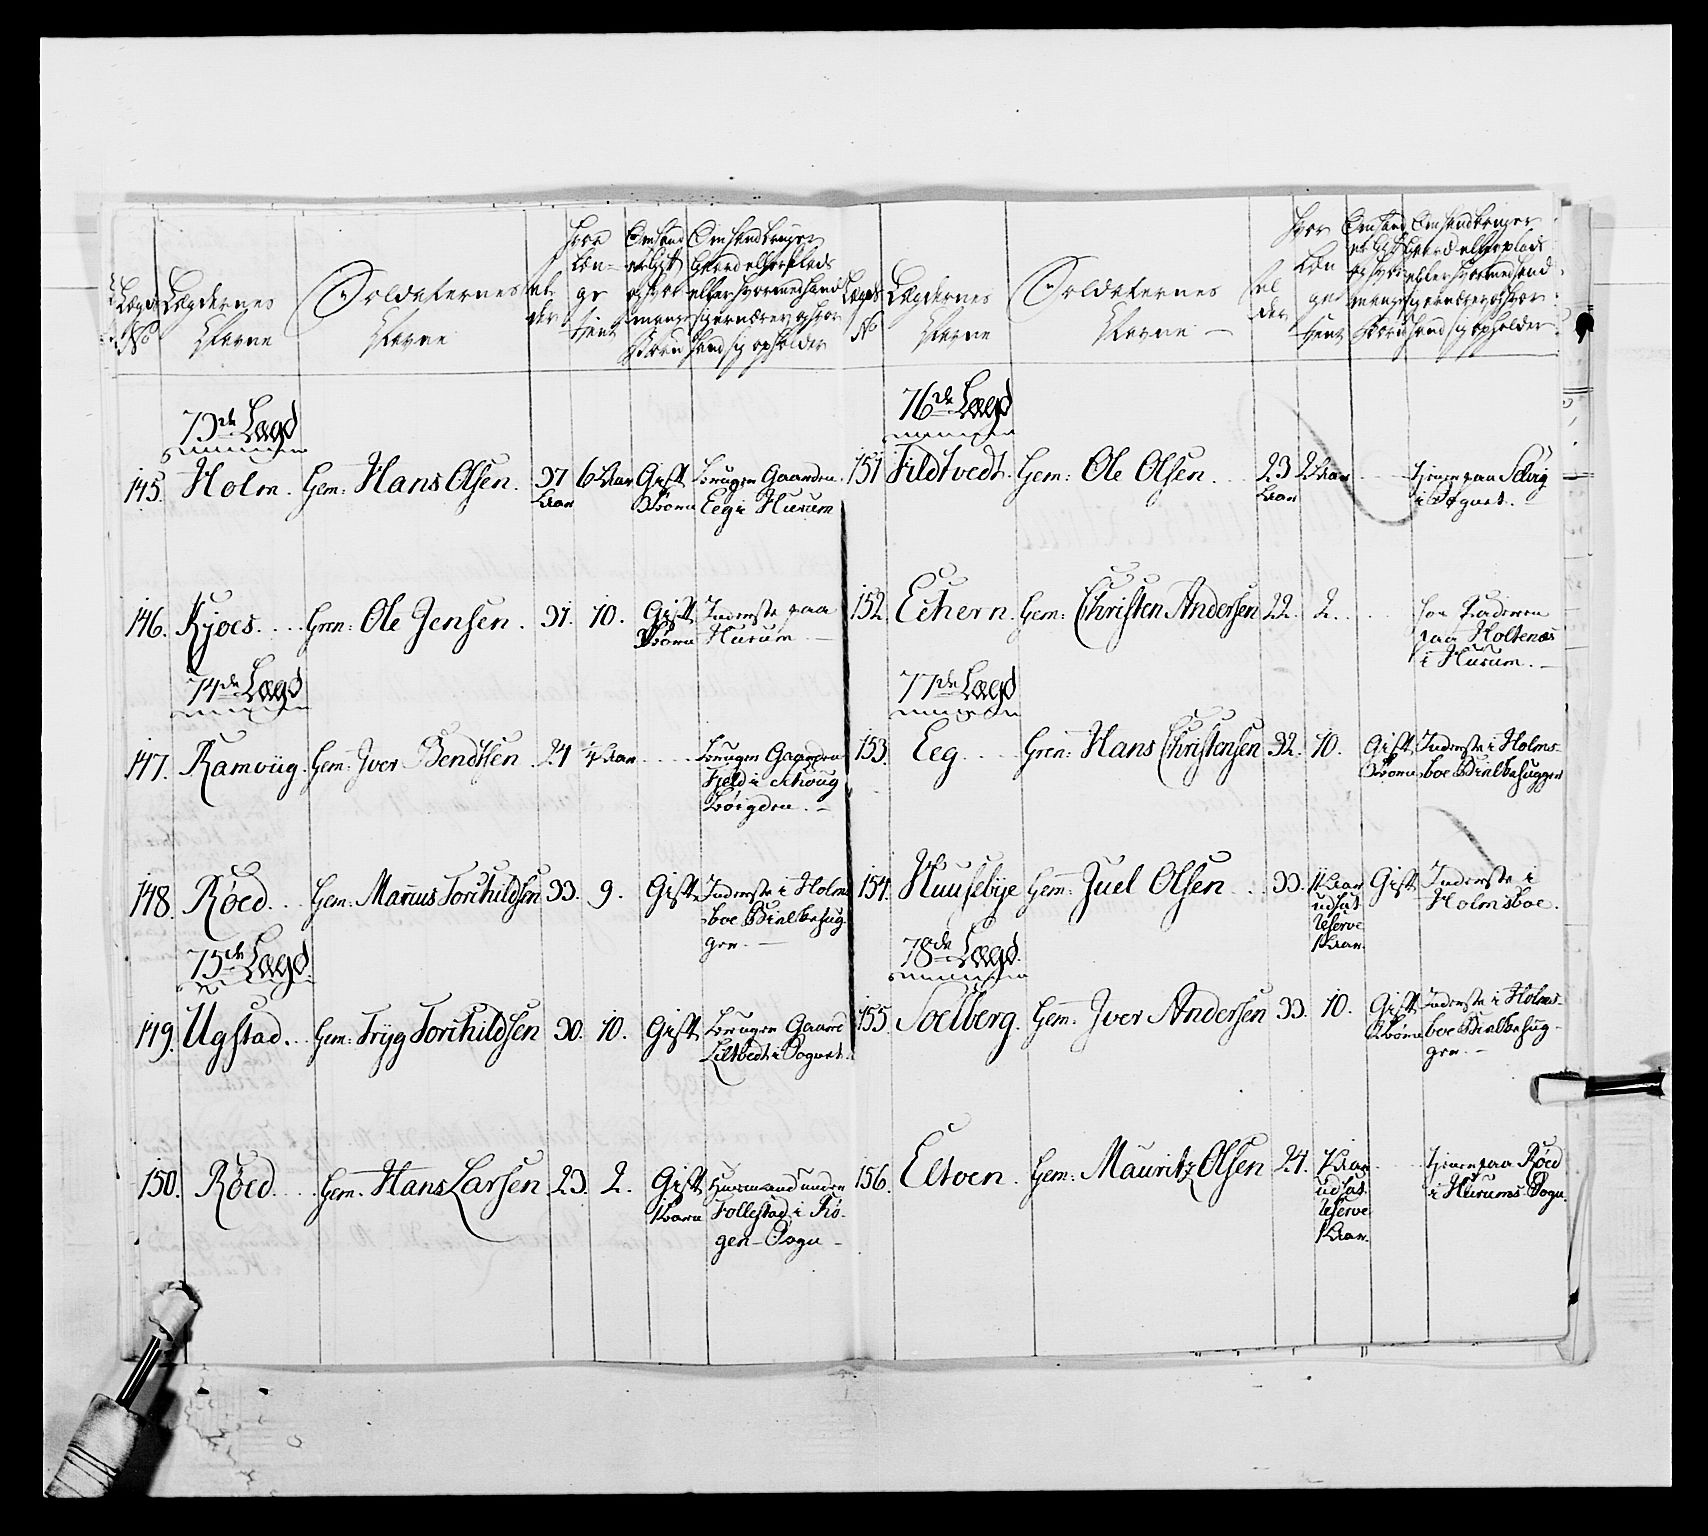 Lægds No
Lægdernes Nafne
Soldaternes Nafne
Al der
Hvor Læn= ge tient
Om hand er Gift og hvor mange Børn
Om hand bruger Gaard eller Plads eller hvormed hand sig ernærer og hvor hand sig opholder
73de Lægd
145. Holm. Gem: Hans Olsen. 37 Aar 6 Aar Gift 3 Børn bruger Gaarden Eeg i Hurum
146. Kjoes. Gren: Ole Jensen. 31. 10. Gift Børn Inderste paa Hurum.
74de Lægd
147. Ramviig. Gem: Iver Bendtsen. 24 Aar bruger Gaarden Fjeld i Schoug bøigden.
148. Røed. Gem: Marcus Torchildsen 33. 9. Gift Inderste i Holms boe gen.
75de Lægd
149. Ugstad. Gem: Tryg Torchildsen 30. 10. Gift bruger Gaard Liltvedt i Sognet.
150. Røed. Gem. Hans Larsen 23. 2. Gift 1 barn Huusmand under Follestad i Rø- gen Sogn
Lægds No
Lægdernes Nafne
Soldaternes Nafne
Al der
Hvor Læn ge tient
Om hand er Gift og hvor mange Børn
Om hand bruger Gaard eller Plads eller hvormed hand sig ernærer og hvor hand sig opholder
76de Lægd
151 Fildtvedt. Gem: Ole Olsen. 23 Aar 2 Aar tiener paa Sølvig i Sognet.
152. Echern. Gem: Christen Andersen 22. 2. hos Faderen paa Holtenæs i Hurum.
77de Lægd
153. Eeg Gren: Hans Christensen 32. 10. Gift Børn Inderste i Holms- boe
154. Huusebye Gem: Juel Olsen 33. Aar udsat Reserve 1 Aar. Gift Inderste i Holmsboe.
78de Lægd
155. Soelberg. Gem: Iver Andersen 33. 10. Gift Børn Inderste i Holms- boe gen.
156. Eltoen. Gem: Mauritz Olsen 24. Aar udsat Reserve 1 Aar. tiener paa Røed i Hurums Sogn.